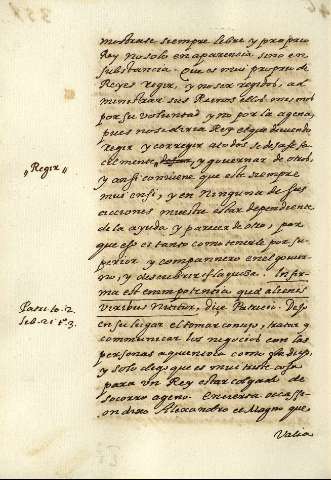 mostrase siempre libre y proprio
Rey no solo en aparencia sino en
substancia. Que es mui proprio de
Reyes regir, y no ser regidos, ad
ministrar sus Reinos ellos mesmos
por su voluntad y no por la agena,
pues no se diria Rey el que deuiendo
regir y corregir a todos se dejase fa
cilmente, y gouernar de otros,
"Regir"
y ansi conviene que esta siempre
mui en si, y en ninguna de sus
acciones muestre estar dependiente
de la ayuda y parecer de otro, por
que esso es tanto como tenerle por su
perior y compannero en el gouier
no, y descubrir flaqueza. Infir
ma est enim potencia quæ alienis
viribus nititur, dize Patricio. Dejo
Patri. to. 2
en su lugar el tomar consejo, tratar y
communicar los negocios con las
personas a quien toca como he dicho,
y solo digo que es mui triste cosa
para un Rey estar colgado de
socorro ageno. En cierta occassi
on dixo Alexandro el Magno que
Valia